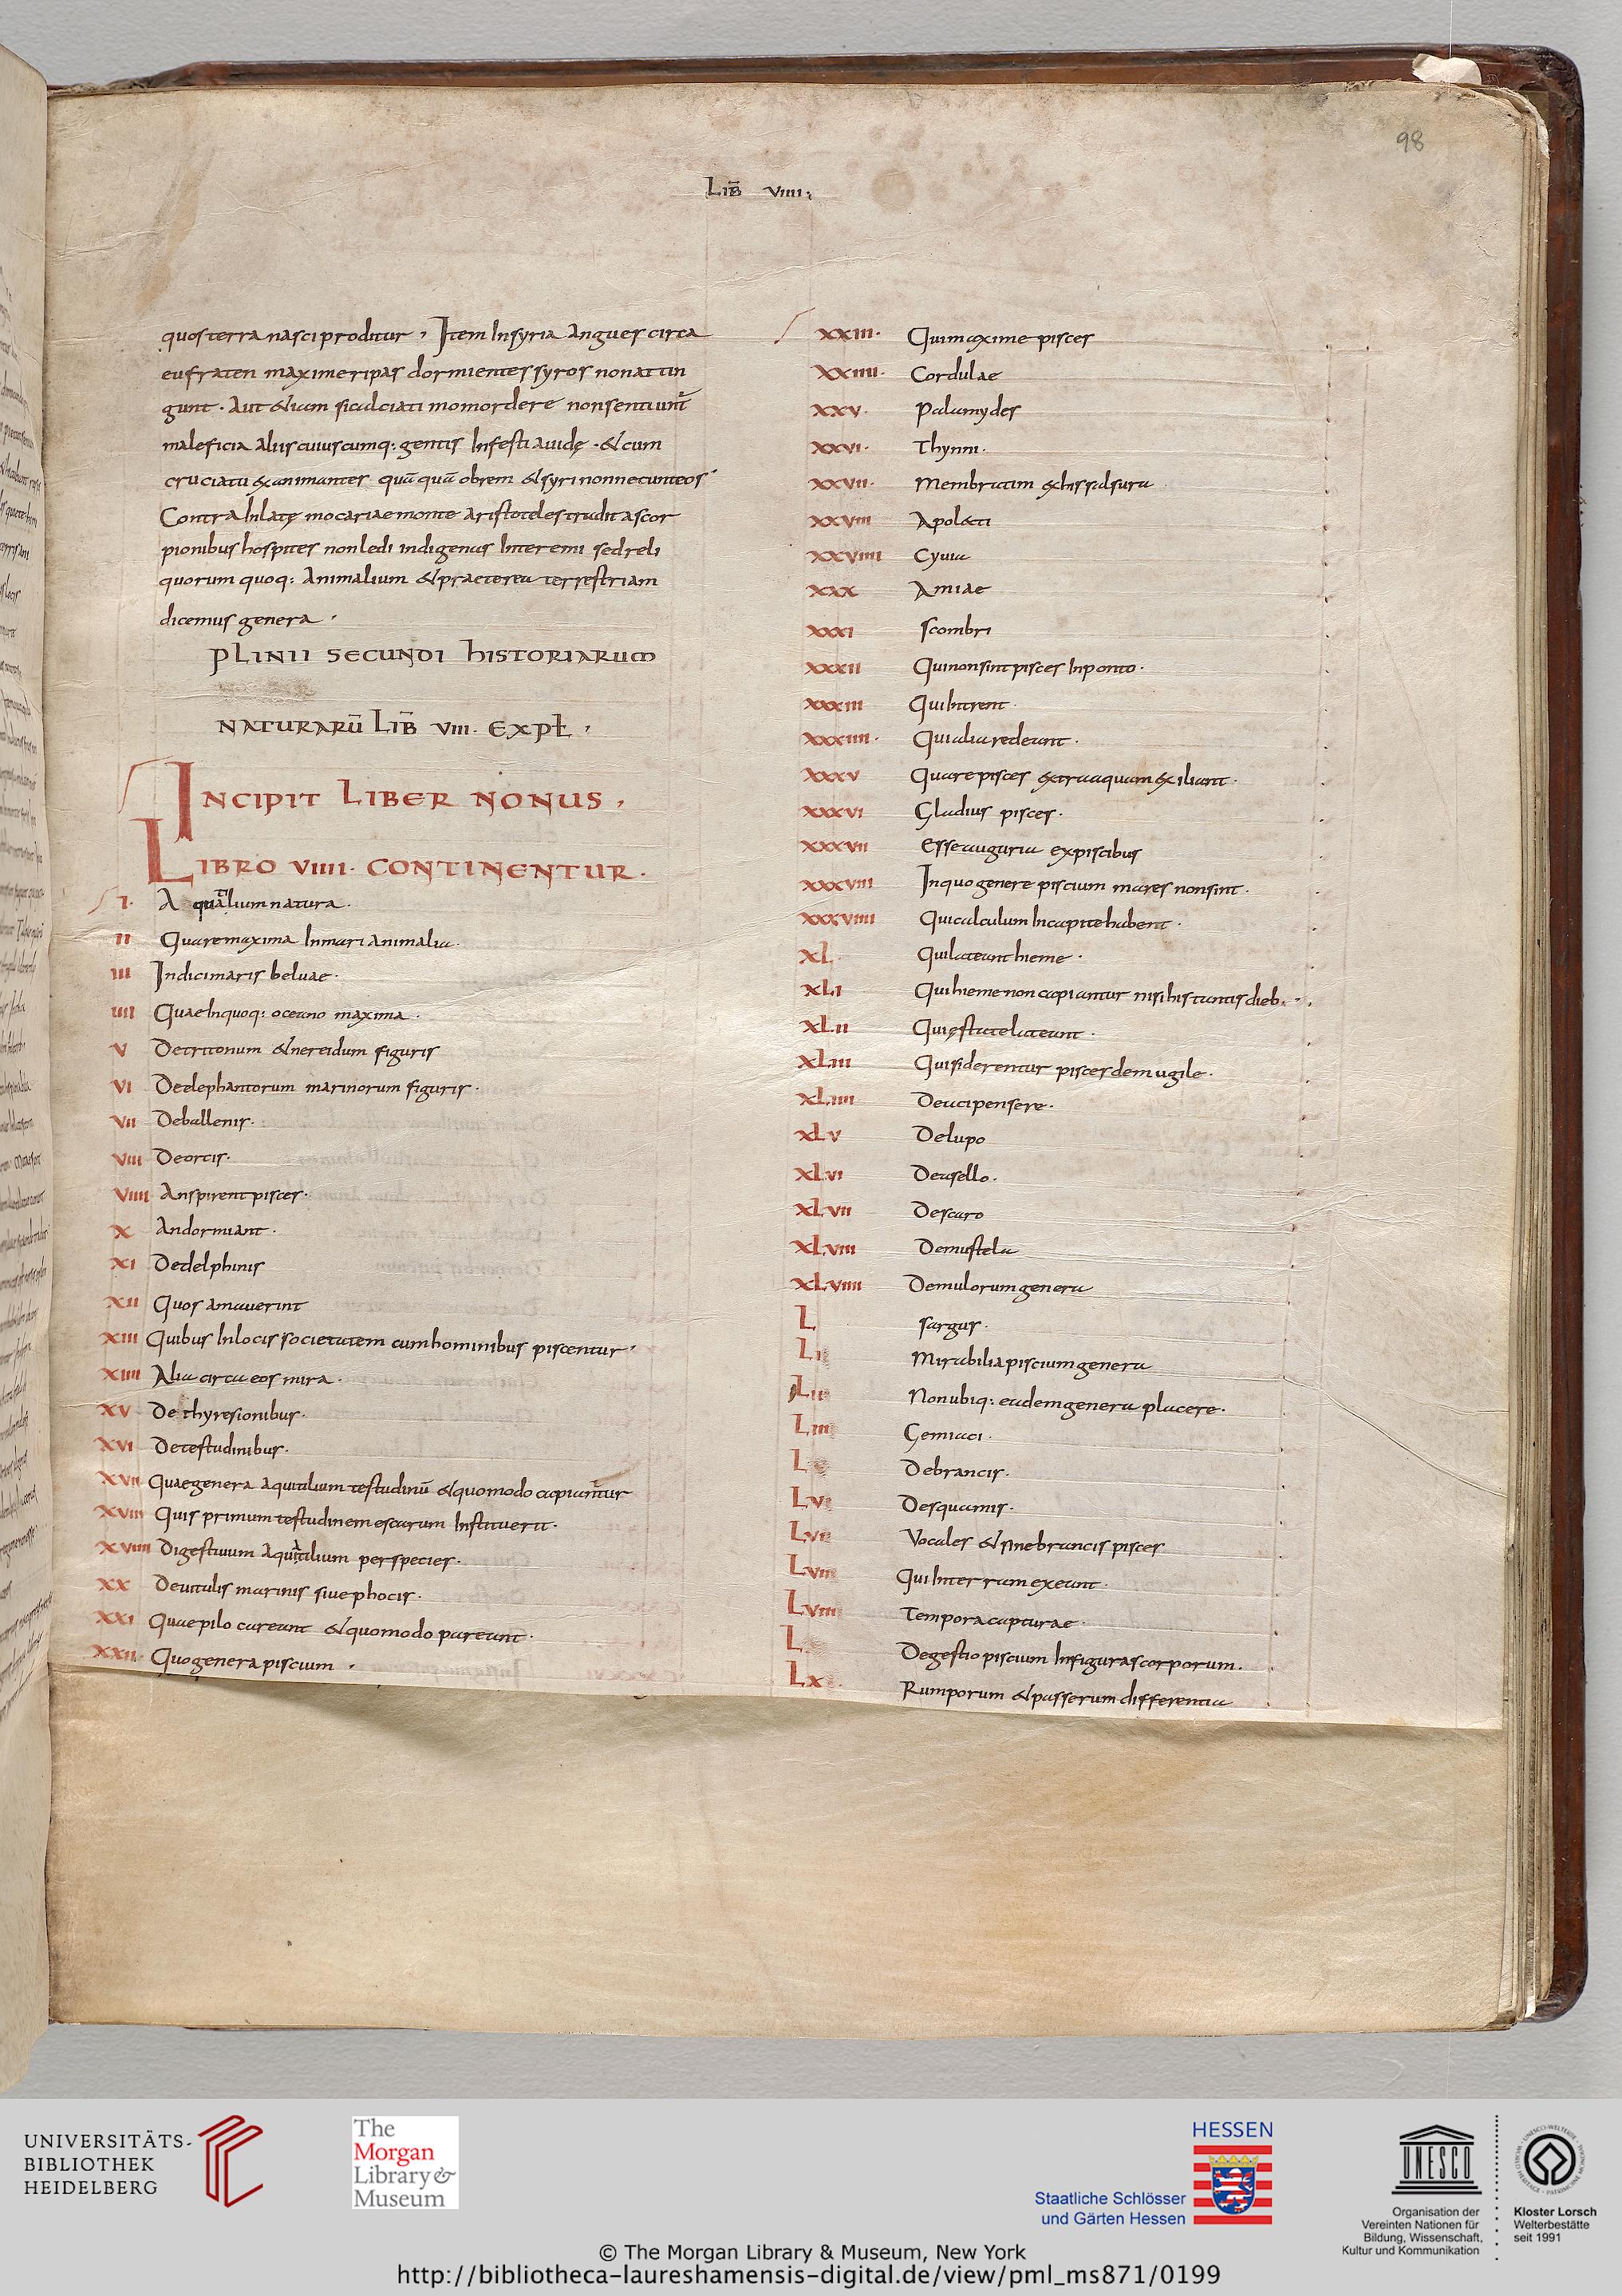 98
Lib̄ VIIII;
quos terra nasci proditur, Item In syria Angues circa
eufraten maxime ripas dormientes syros non attin
gunt. Aut &iam si calciati momordere non sentiunt
maleficia Aliis cuiuscumq: gentis Infesti auidę. & cum
cruciatu exanimantes quā quā obrem & syri non necunt eos
Contra In latę mocariae monte Aristoteles tradit a scor
pionibus hospites non ledi indigenas Interemi sed reli
quorum quoq: Animalium & praeterea terrestriam
dicemus genera.
PLINII SECUNDI HISTORIARUM
NATURARŪ LIB̄ VIII. EXPŁ,
INCIPIT LIBER NONUS,
LIBRO VIIII. CONTINENTUR.
I. Aquatalium natura.
II Quare maxima In mari Animalia.
III Indici maris beluae.
IIII Quae Inquoq: oceano maxima.
V De tritonum & nereidum figuris
VI De elephantorum marinorum figuris.
VII De ballenis.
VIII De orcis.
VIIII An spirent pisces.
X An dormiant.
XI De delphinis
XII Quos amauerint
XIII Quibus In locis societatem cum hominibus piscentur,
XIIII Alia circa eos mira.
XV De thyresionibus.
XVI De testudinibus.
XVII Quae genera Aquitilium testudinū & quomodo capiantur
XVIII Quis primum testudinem escarum Instituerit.
XVIIII Digestiuum Aquatilium per species.
XX De uitulis marinis siue phocis.
XXI Quae pilo careant & quomodo pareant.
XXII. Quo genera piscium.
XXIII. Qui maxime pisces
XXIIII. Cordulae
XXV. Palamydes
XXVI. Thynni.
XXVII. Membratim ex his salsura
XXVIII Apolecti
XXVIIII Cyuia
XXX Amiae
XXXI Scombri
XXXII Qui non sint pisces In ponto.
XXXIII Qui Intrent.
XXXIIII. Qui alia redeant.
XXXV Quare pisces extra aquam exiliant.
XXXVI Gladius pisces.
XXXVII Esse auguria ex piscibus
XXXVIII In quo genere piscium mares non sint.
XXXVIIII Qui calculum In capite habent.
XL. Qui lateant hieme.
XLI Qui hieme non capiantur nisi his tantis dieb.
XLII Qui ęstate lateant.
XLIII Qui siderentur pisces de mugile.
XLIIII De acipensere.
XLV De lupo
XLVI De asello.
XLVII De scaro
XLVIII De mustela
XLVIIII De mulorum genera
L Sargus.
LI Mirabilia piscium genera
LII Non ubiq: eadem genera placere.
LIII Gemiaci.
L De brancis.
LV De squamis.
LVI Vocales & sine brancis pisces
LVII Qui In terram exeant.
LVIII Tempora capturae.
L Degestio piscium In figuras corporum.
LX Rumporum & passerum differentia
UNIVERSITÄTS-
BIBLIOTHEK
HEIDELBERG
The
Morgan
Library &
Museum
HESSEN
Staatliche Schlösser
und Gärten Hessen
UNESCO
Organisation der
Vereinten Nationen für
Bildung, Wissenschaft,
Kultur und Kommunikation
Kloster Lorsch
Welterbestätte
seit 1991
© The Morgan Library & Museum, New York
http://bibliotheca-laureshamensis-digital.de/view/pml_ms871/0199